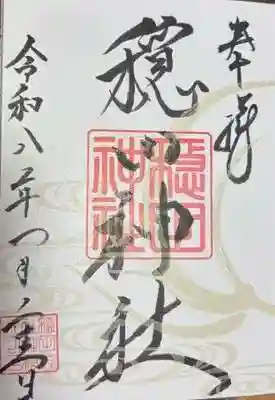 奉拝
穏田神社
穏田神社
令和八年一月日